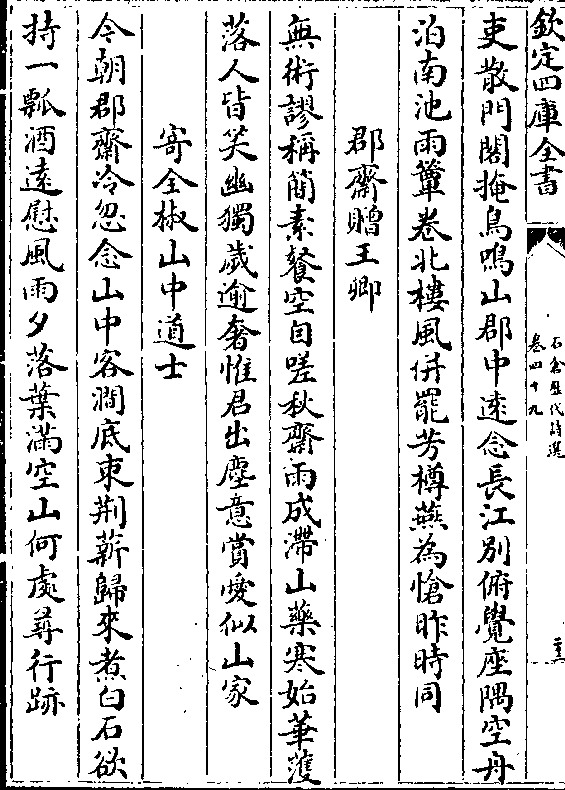 欽定四庫全書
石倉歷代詩選
卷四十九
吏散門閣掩鳥鳴山郡中遠念長江別俯覺座隅空舟
泊南池雨簟卷北樓風併罷芳樽燕為愴昨時同
郡齋贈王卿
無術謬稱簡素餐空自嗟秋齋雨成滯山藥寒始華濩
落人皆笑幽獨歲逾奢惟君出塵意賞愛似山家
寄全椒山中道士
今朝郡齋冷忽念山中客澗底束荊薪歸來煮白石欲
持一瓢酒遠慰風雨夕落葉滿空山何處尋行跡